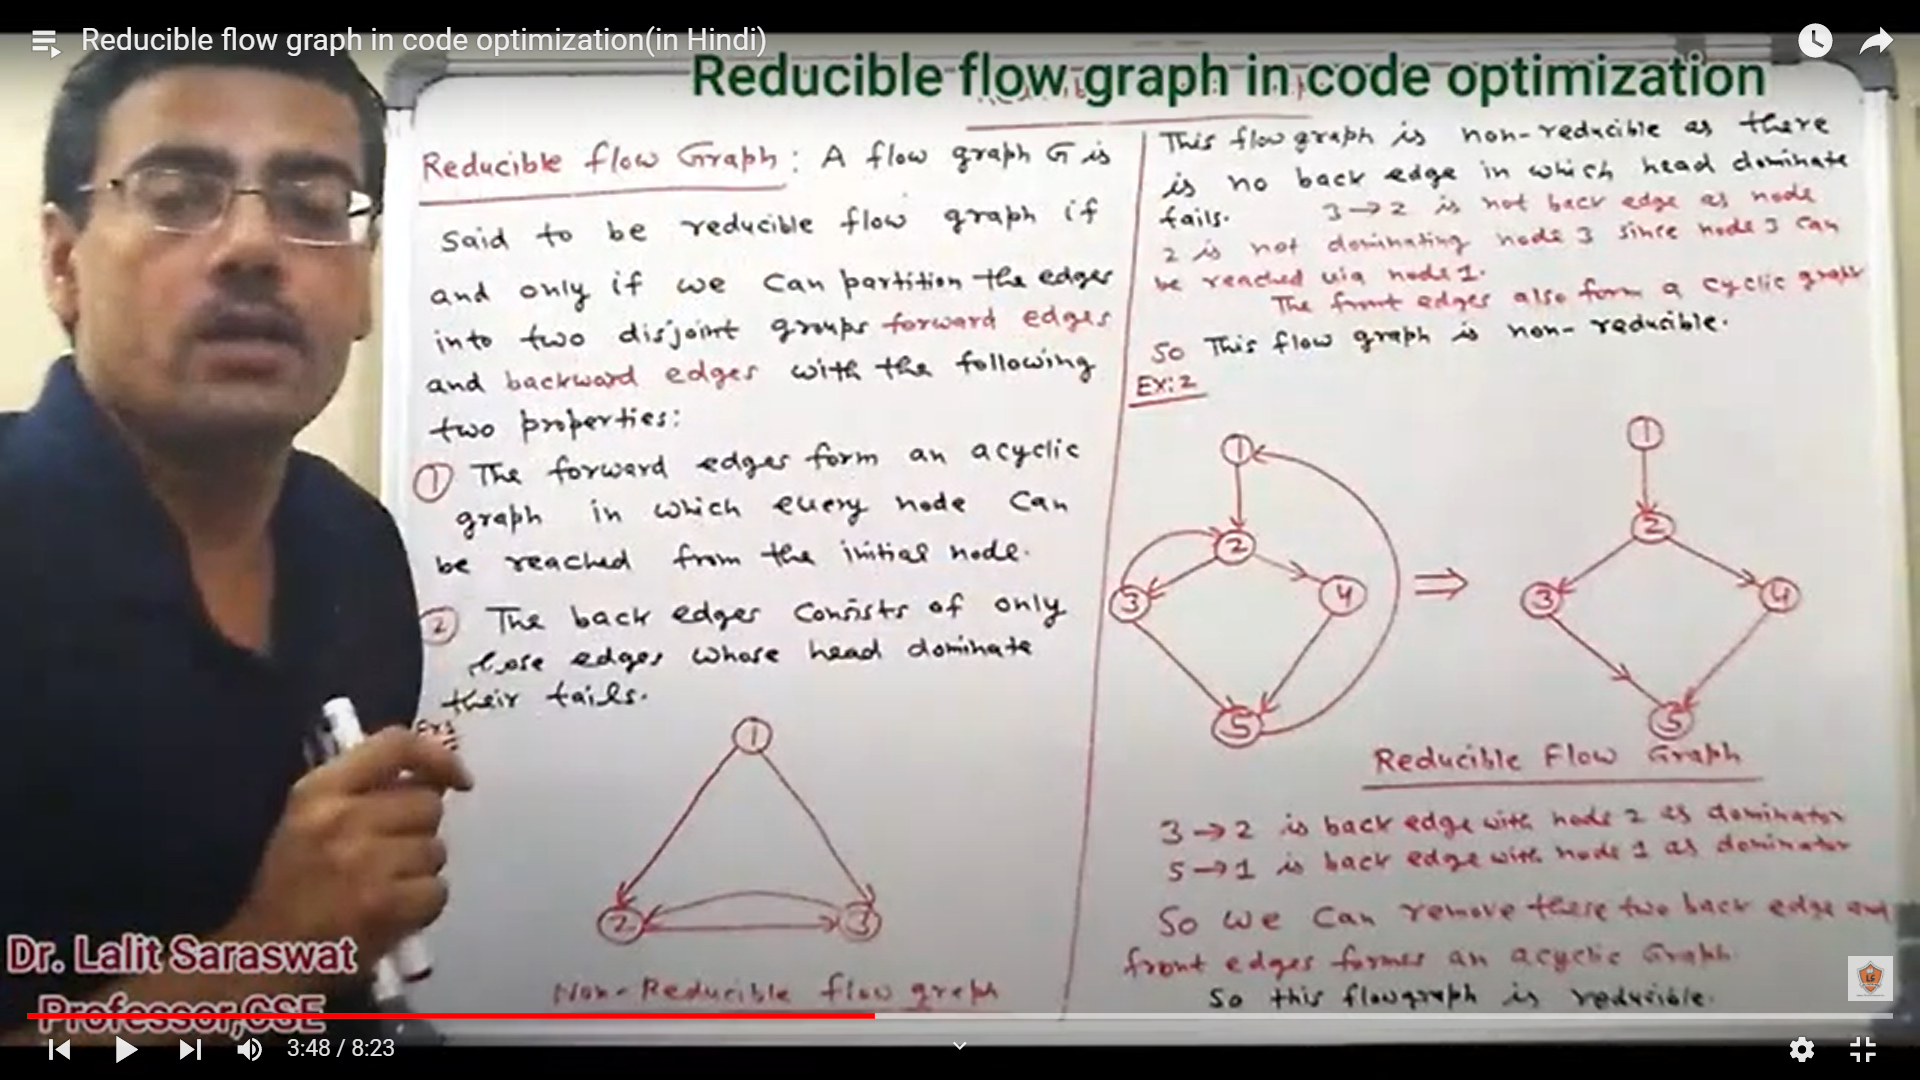 Reducible flow graph in code optimization(in Hindi)
Reducible flow graph in code optimization
Reducible flow Graph: A flow graph G is
said to be reducible flow graph if
and only if we can partition the edges
into two disjoint groups forward edges
and backward edges with the following
two properties:
① The forward edges form an acyclic
graph in which every node can
be reached from the initial node.
② The back edges consists of only
those edges whose head dominate
their tails.
1
2
3
Non-Reducible flow graph
This flow graph is non-reducible as there
is no back edge in which head dominate
tails. 3→2 is not back edge as node
2 is not dominating node 3 since node 3 can
be reached via node 1.
The front edges also form a cyclic graph
So This flow graph is non-reducible.
Ex:2
1
2
3
4
5
⇒
1
2
3
4
5
Reducible Flow Graph
3→2 is back edge with node 2 as dominator
5→1 is back edge with node 1 as dominator
So we can remove these two back edge and
front edges formes an acyclic Graph.
So this flowgraph is reducible.
Dr. Lalit Saraswat
Professor,CSE
3:48 / 8:23